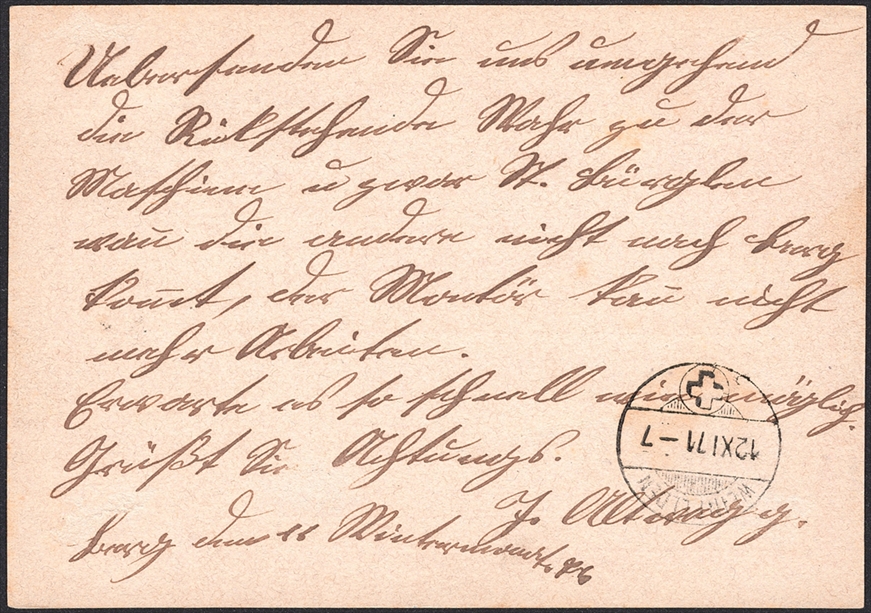 Uebersenden Sie uns umgehend
die Rükstehende Wahr zu der
Maschiene u zwar St. Bürglen
wan die andere nicht nach Berg
komt, der Montör kan nicht
mehr Arbeiten.
Erwarte es so schnell wie möglich.
Grüßt Sie Achtungs.
J.
Berg den 11 Wintermonat
12 XI 71 – 7